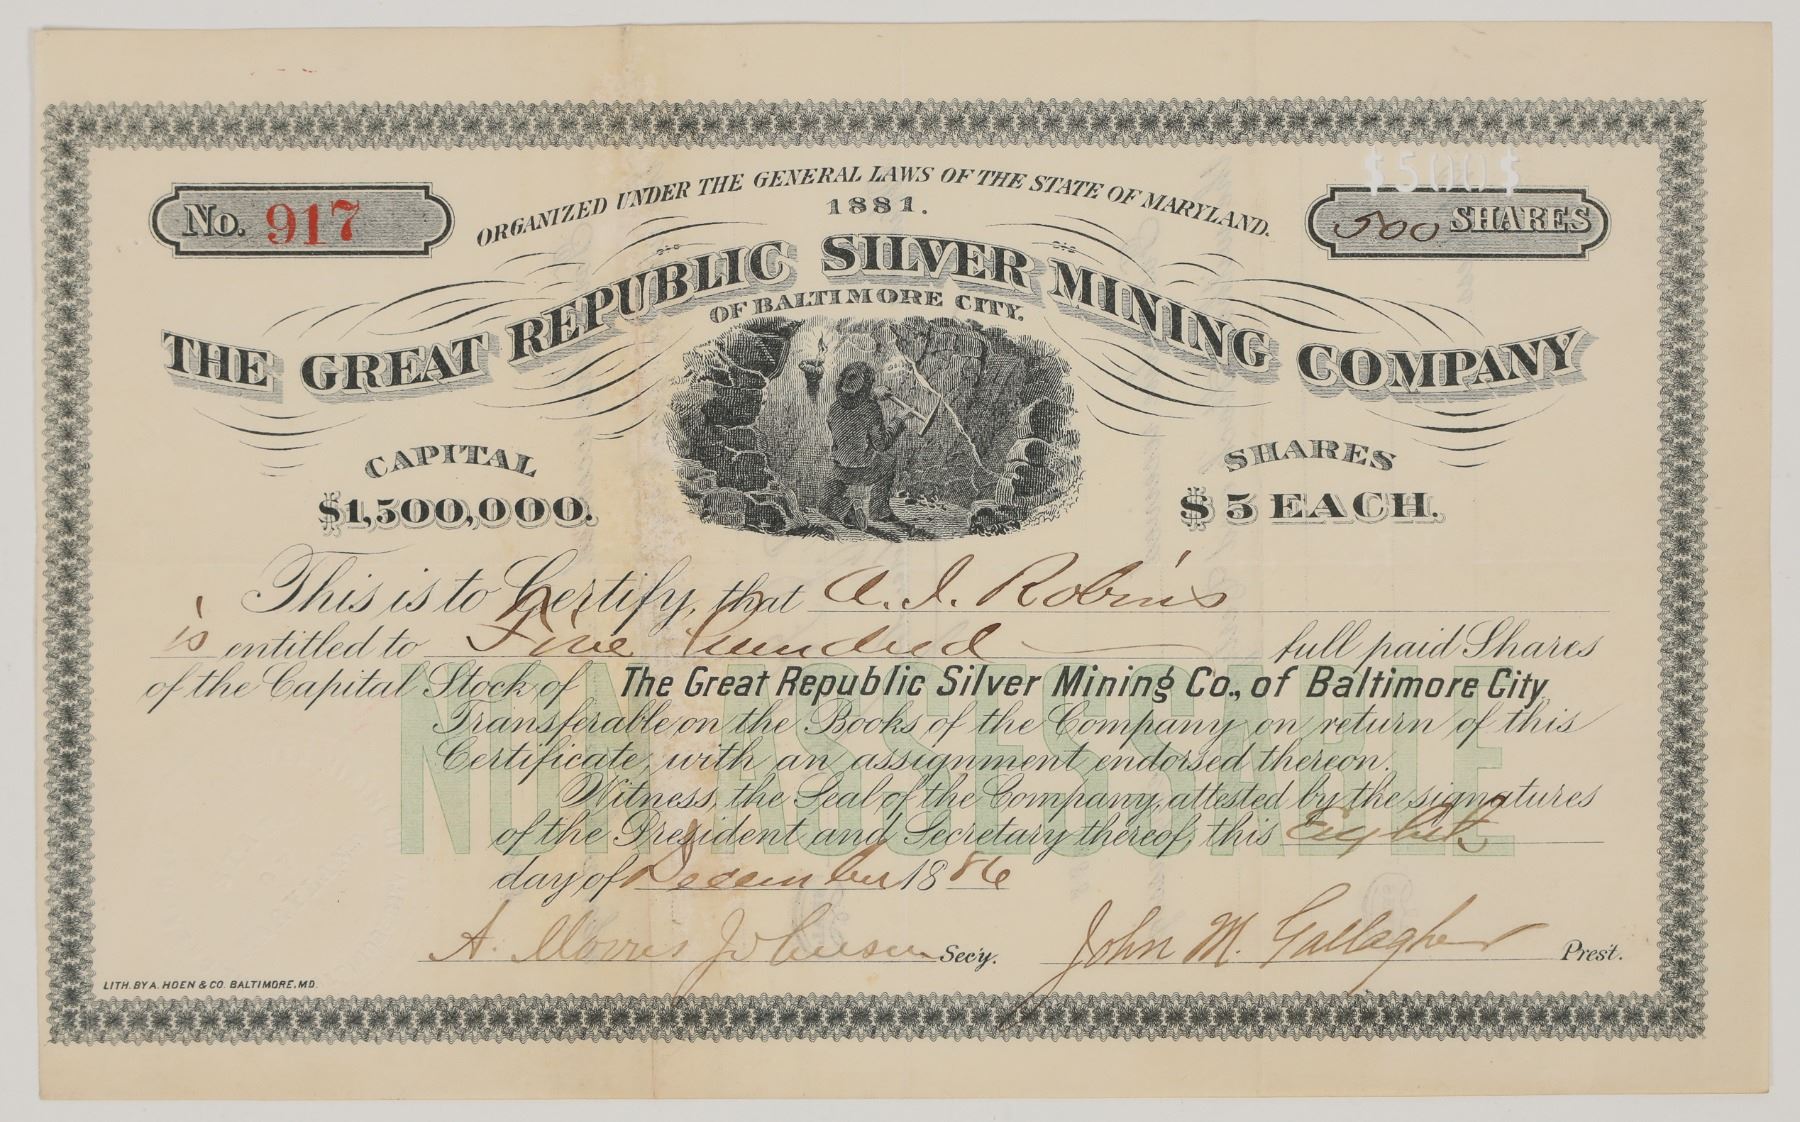 ORGANIZED UNDER THE GENERAL LAWS OF THE STATE OF MARYLAND.
1881.
No. 917
$500$
500 SHARES
THE GREAT REPUBLIC SILVER MINING COMPANY
OF BALTIMORE CITY.
CAPITAL
$1,500,000.
SHARES
$5 EACH.
This is to Certify, that A. I. Robins
is entitled to Five Hundred full paid Shares
of the Capital Stock of The Great Republic Silver Mining Co., of Baltimore City
Transferable on the Books of the Company on return of this
Certificate, with an assignment endorsed thereon.
Witness, the Seal of the Company, attested by the signatures
of the President and Secretary thereof, this Eighth
day of December 1886
NON ASSESSABLE
A. Morris Johnson Secy.
John M. Gallagher Prest.
LITH. BY A. HOEN & CO. BALTIMORE, MD.